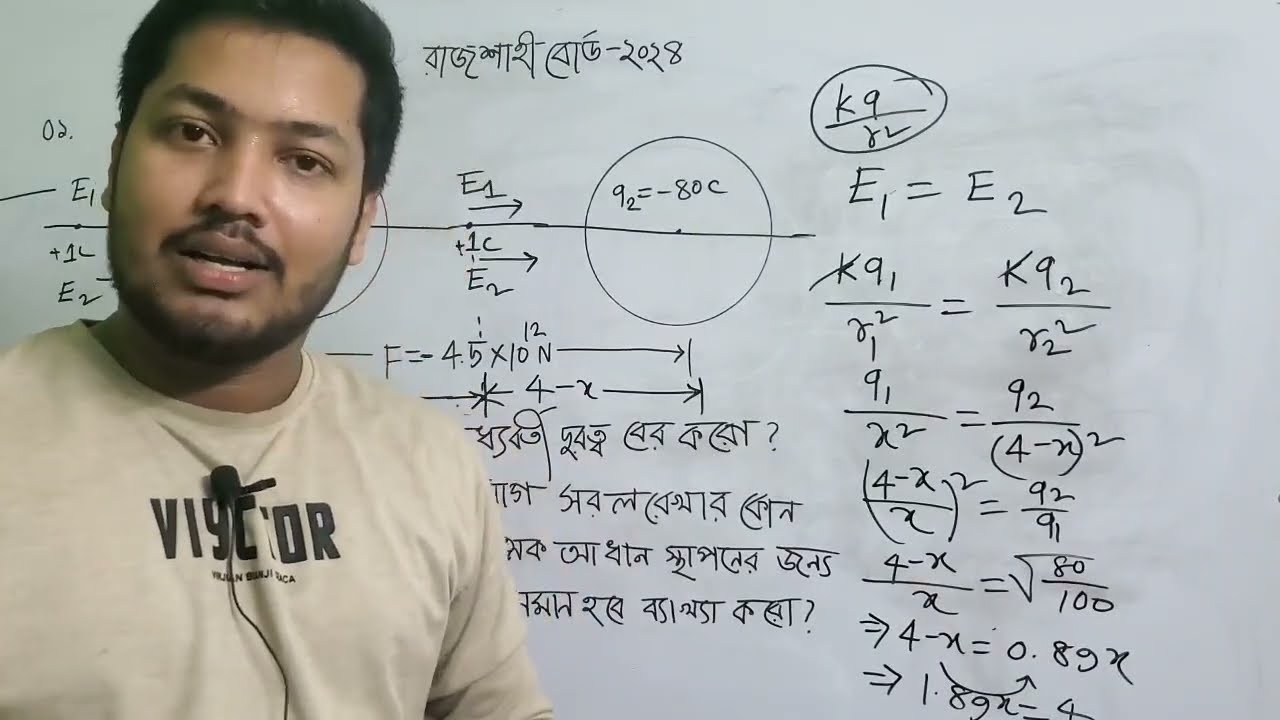 রাজশাহী বোর্ড-২০২৪
০১.
E₁
+1c
E₂
E1
+1c
E₂
q₂=-80c
F=-4.5×10¹²N
4-x
দূরত্ব বের করো?
সরলরেখার কোন
আধান স্থাপনের জন্য
হবে ব্যাখ্যা করো?
Kq/r²
E₁ = E₂
Kq₁/r₁² = Kq₂/r₂²
q₁/x² = q₂/(4-x)²
((4-x)/x)² = q₂/q₁
(4-x)/x = √(80/100)
⇒ 4-x = 0.89x
⇒ 1.89x = 4
VICTOR